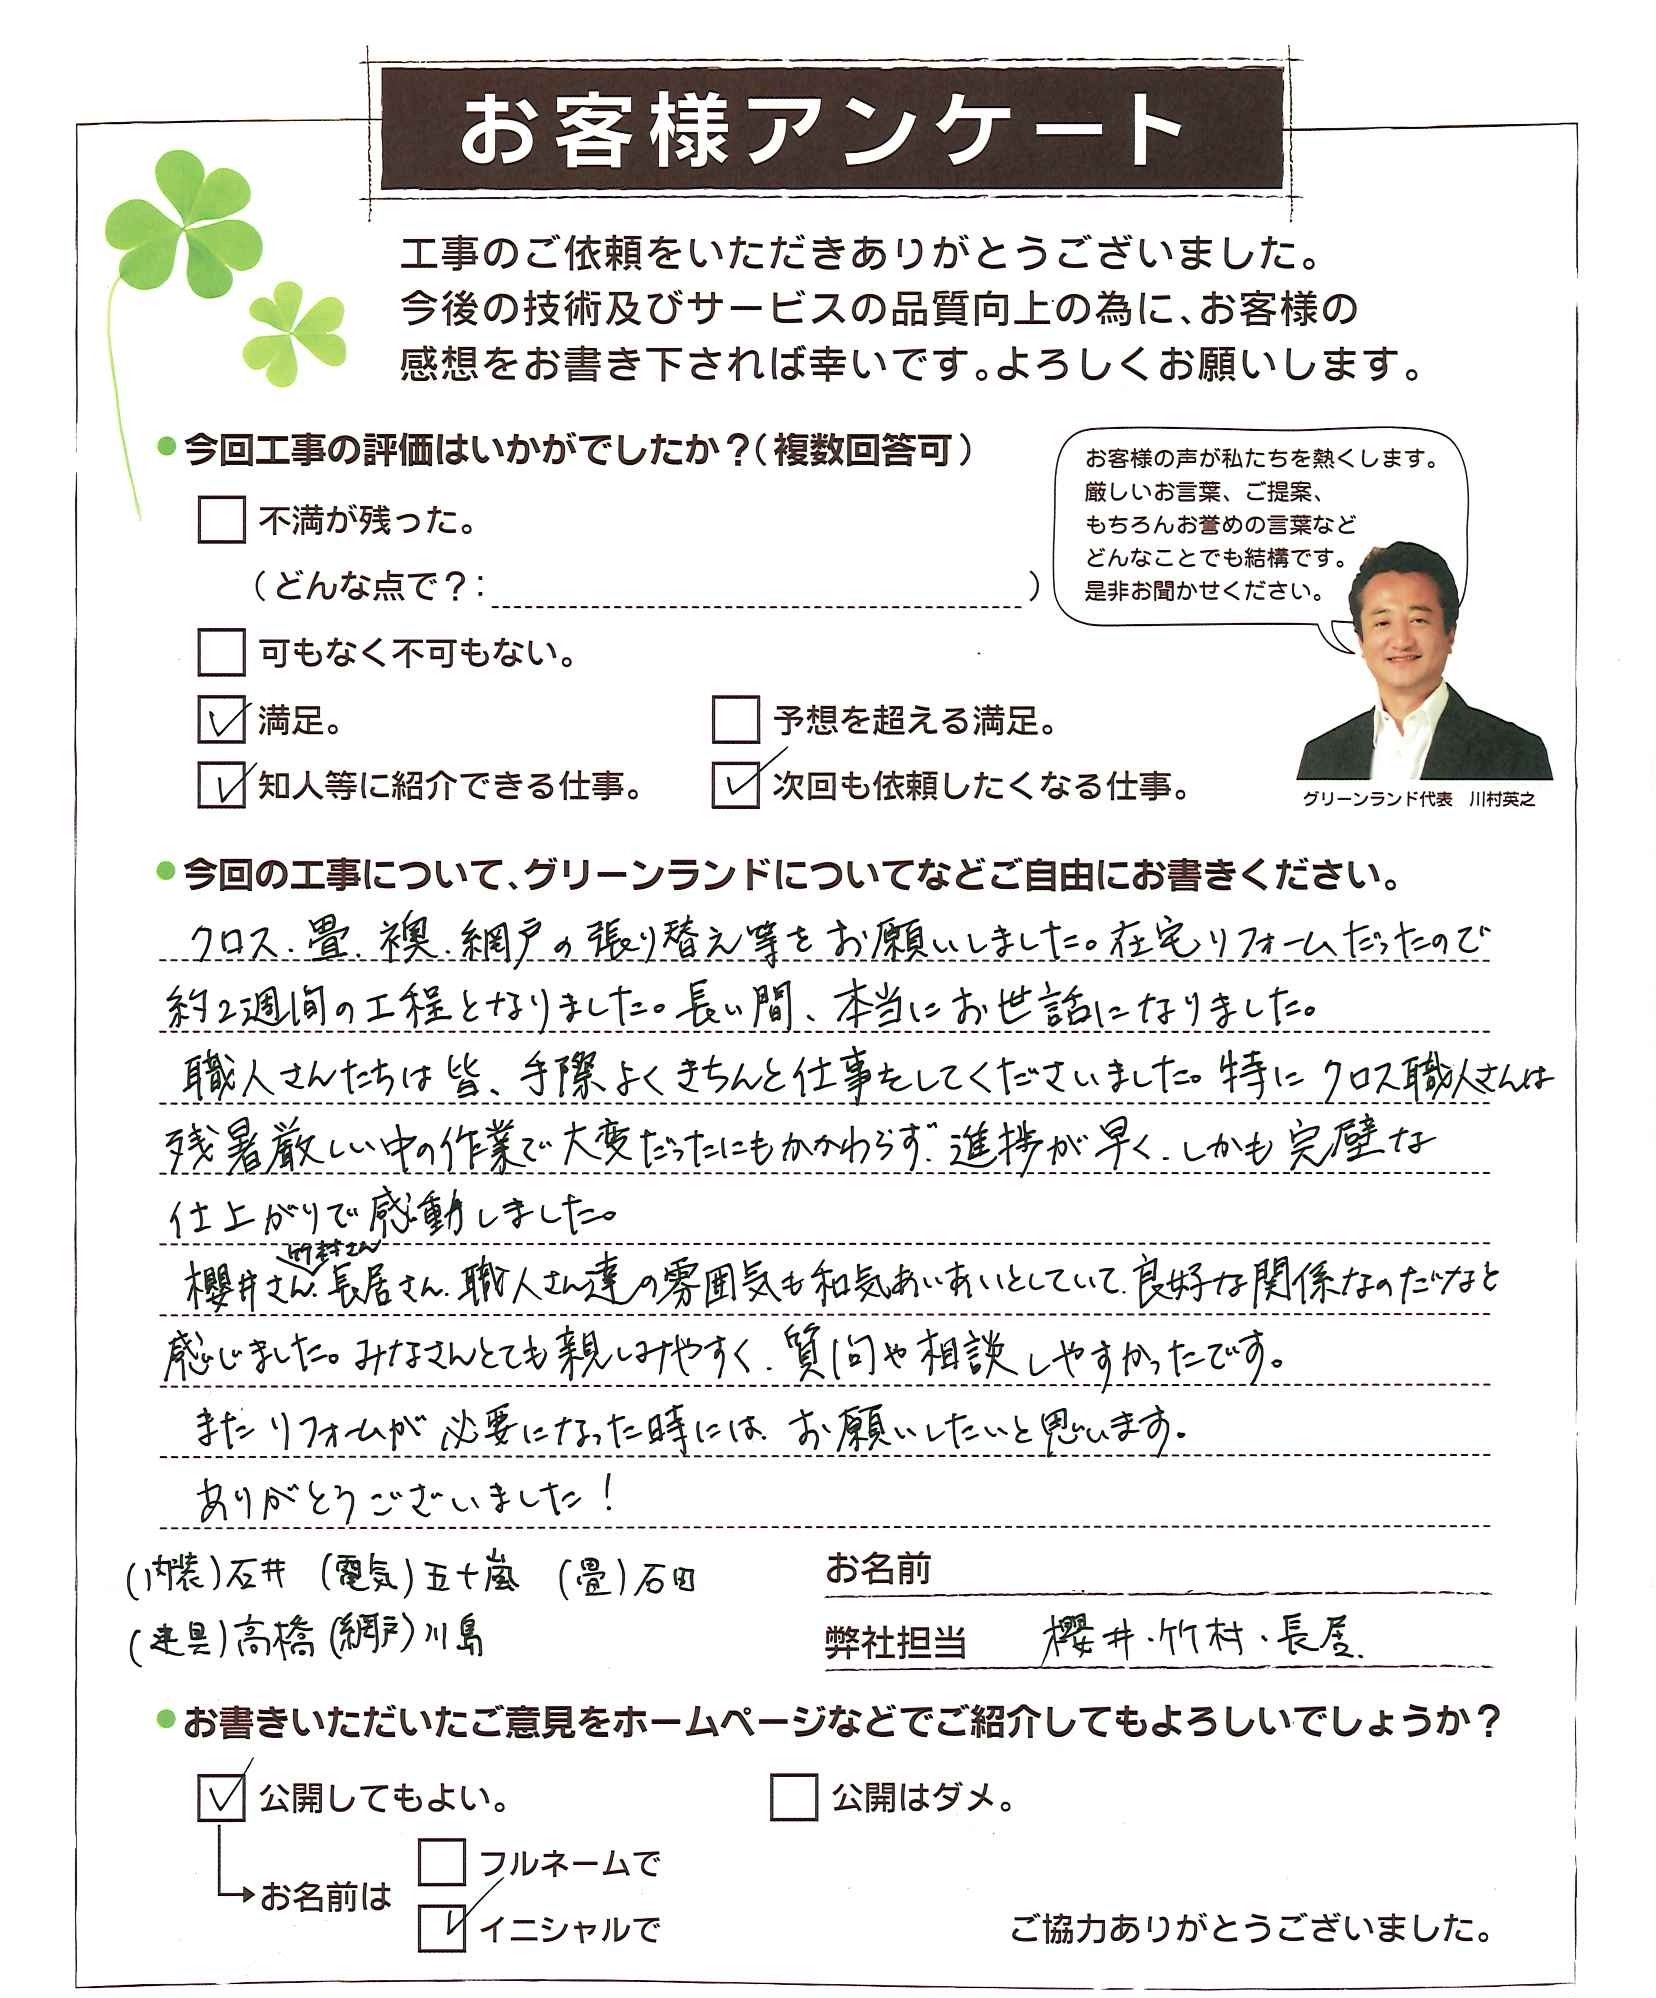 お客様アンケート
工事のご依頼をいただきありがとうございました。
今後の技術及びサービスの品質向上の為に、お客様の
感想をお書き下されば幸いです。よろしくお願いします。
●今回工事の評価はいかがでしたか?(複数回答可)
不満が残った。
(どんな点で?: )
可もなく不可もない。
満足。
予想を超える満足。
知人等に紹介できる仕事。
次回も依頼したくなる仕事。
お客様の声が私たちを熱くします。
厳しいお言葉、ご提案、
もちろんお誉めの言葉など
どんなことでも結構です。
是非お聞かせください。
グリーンランド代表 川村英之
●今回の工事について、グリーンランドについてなどご自由にお書きください。
クロス、畳、襖、網戸の張り替え等をお願いしました。在宅リフォームだったので
約2週間の工程となりました。長い間、本当にお世話になりました。
職人さんたちは皆、手際よくきちんと仕事をしてくださいました。特にクロス職人さんは
残暑厳しい中の作業で大変だったにもかかわらず、進捗が早く、しかも完璧な
仕上がりで感動しました。
竹村さん
櫻井さん、長居さん、職人さん達の雰囲気も和気あいあいとしていて、良好な関係なのだなと
感じました。みなさんとても親しみやすく、質問や相談しやすかったです。
またリフォームが必要になった時には、お願いしたいと思います。
ありがとうございました!
(内装)石井 (電気)五十嵐 (畳)石田
(建具)高橋 (網戸)川島
お名前
弊社担当 櫻井・竹村・長居
●お書きいただいたご意見をホームページなどでご紹介してもよろしいでしょうか?
公開してもよい。
公開はダメ。
お名前は
フルネームで
イニシャルで
ご協力ありがとうございました。